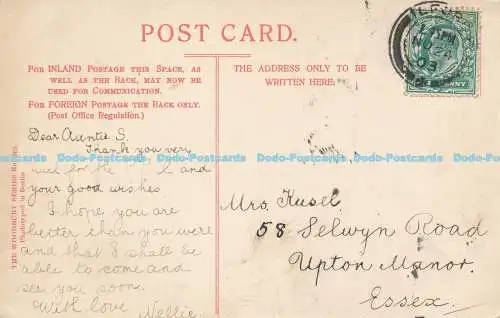 POST CARD.
FOR INLAND POSTAGE THIS SPACE, AS
WELL AS THE BACK, MAY NOW BE
USED FOR COMMUNICATION.
FOR FOREIGN POSTAGE THE BACK ONLY.
(Post Office Regulation.)
THE ADDRESS ONLY TO BE
WRITTEN HERE.
THE WOODBURY SERIES
Dear Auntie S.
Thank you very
much for the and
your good wishes
I hope you are
better than you were
and that I shall be
able to come and
see you soon.
With love Nellie.
Mrs. Kusel
58 Selwyn Road
Upton Manor.
Essex.
PENNY
Dodo-Postcards Dodo-Postcards Dodo-Postcards Dodo-Postcards Dodo-Postcards